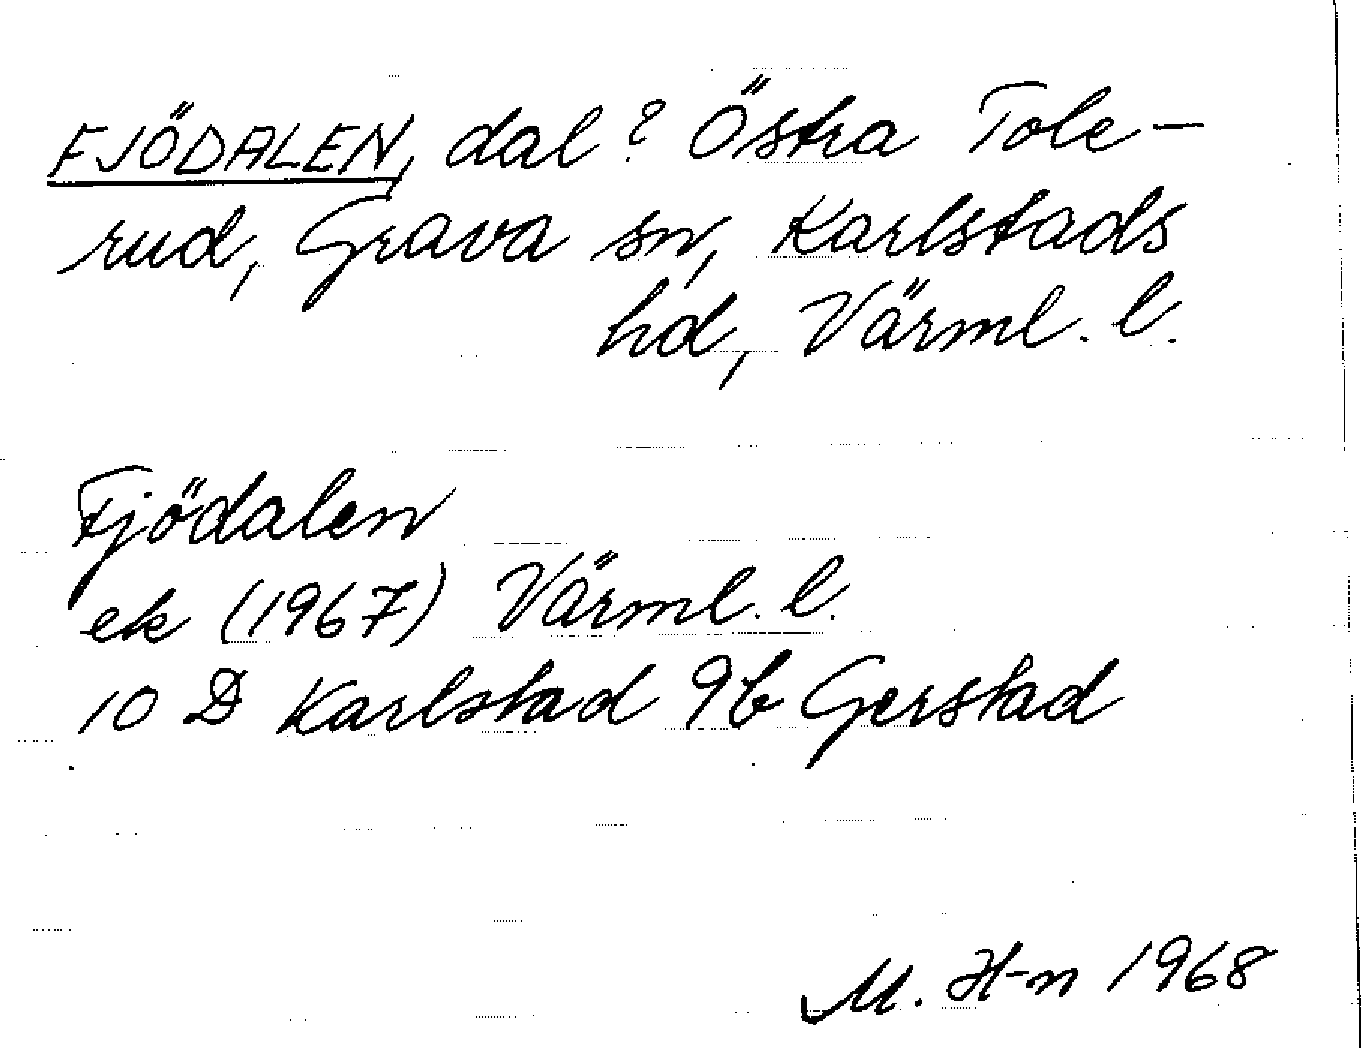 FJÖDALEN, dal? Östra Tole-
rud, Grava sn, Karlstads
hd, Värml. l.
Fjödalen
ek (1967) Värml. l.
10 D Karlstad 9b Gerstad
M. H-n 1968